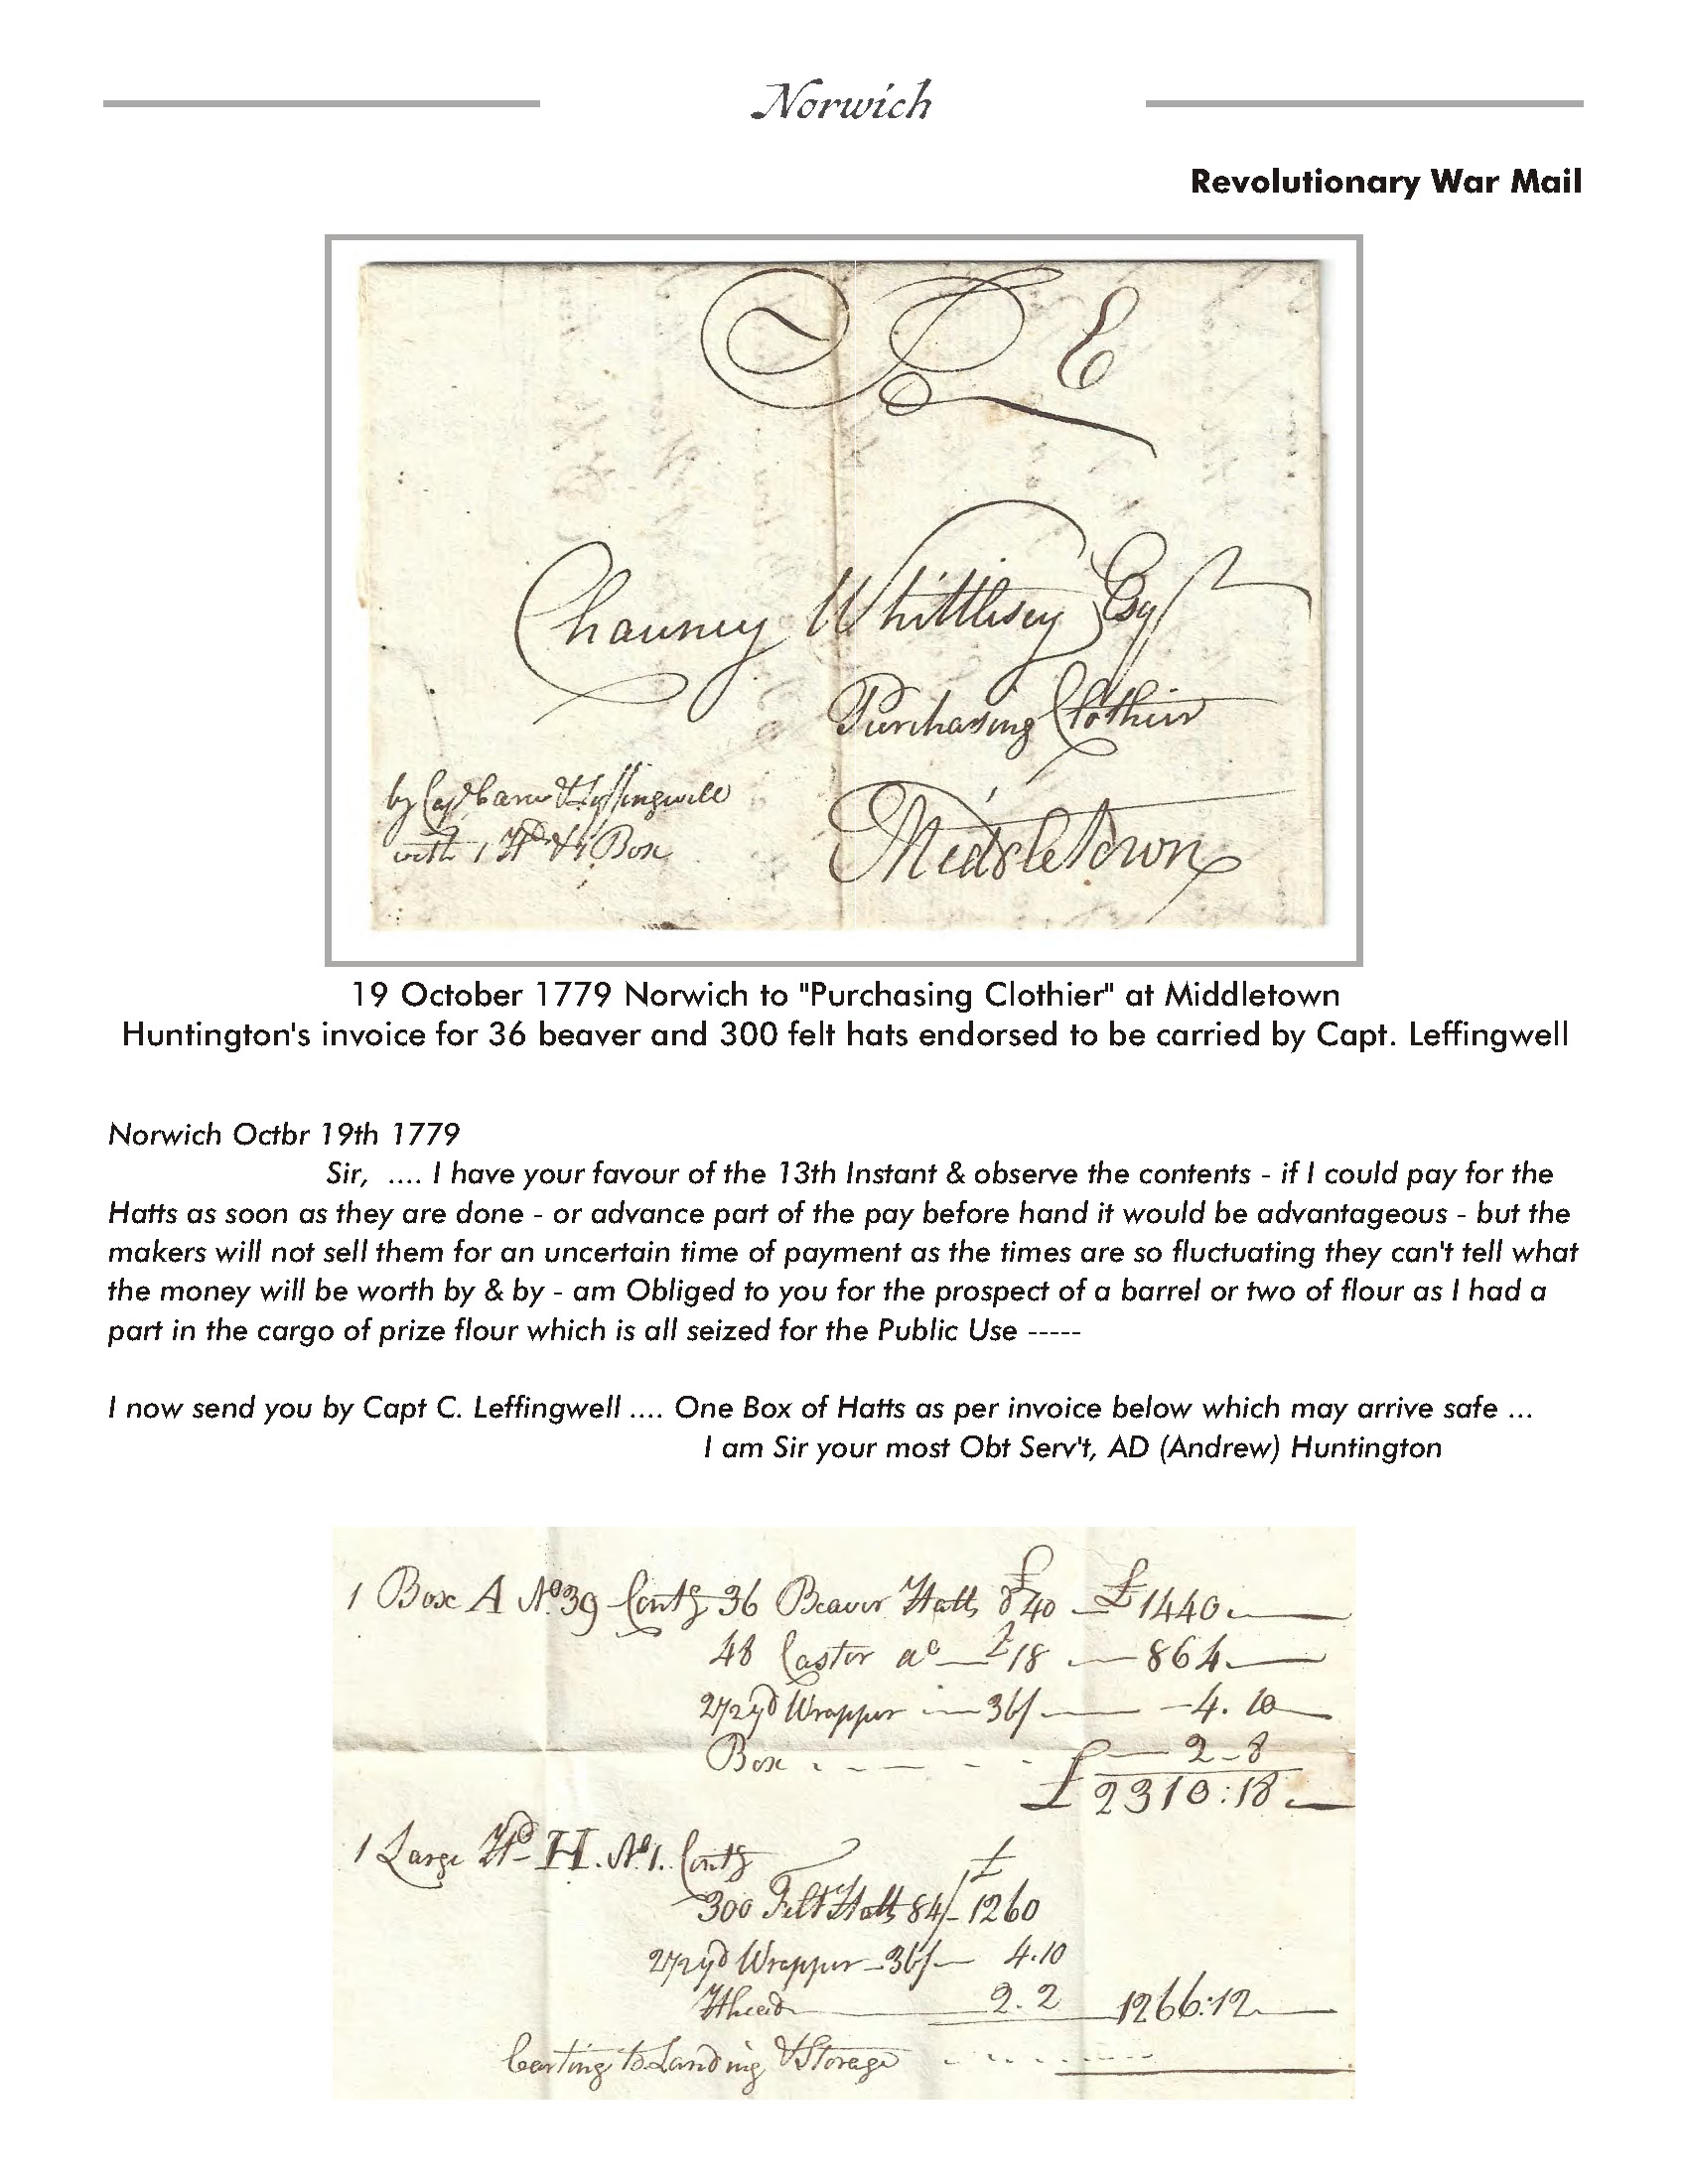 Norwich
Revolutionary War Mail
E
Chauncy Whittlisey Esqr
Purchasing Clothier
Middletown
by Capt Leffingwell
with 1 Hd & 1 Box
19 October 1779 Norwich to "Purchasing Clothier" at Middletown
Huntington's invoice for 36 beaver and 300 felt hats endorsed to be carried by Capt. Leffingwell
Norwich Octbr 19th 1779
Sir, .... I have your favour of the 13th Instant & observe the contents - if I could pay for the
Hatts as soon as they are done - or advance part of the pay before hand it would be advantageous - but the
makers will not sell them for an uncertain time of payment as the times are so fluctuating they can't tell what
the money will be worth by & by - am Obliged to you for the prospect of a barrel or two of flour as I had a
part in the cargo of prize flour which is all seized for the Public Use -----
I now send you by Capt C. Leffingwell .... One Box of Hatts as per invoice below which may arrive safe ...
I am Sir your most Obt Serv't, AD (Andrew) Huntington
1 Box A No. 39 Contg 36 Beaver Hatts £40 — £1440 —
48 Castor do — £18 — 864 —
2 1/2 yd Wrapper — 36/ — 4. 10 —
Box . - - - 2 - 8
£2310:18 —
1 Large Hd H. No 1. Contg
£
300 Felt Hatts 84/ - 1260
2 1/2 yd Wrapper - 36/ — 4.10
2. 2 1266:12 —
Carting to Landing & Storage